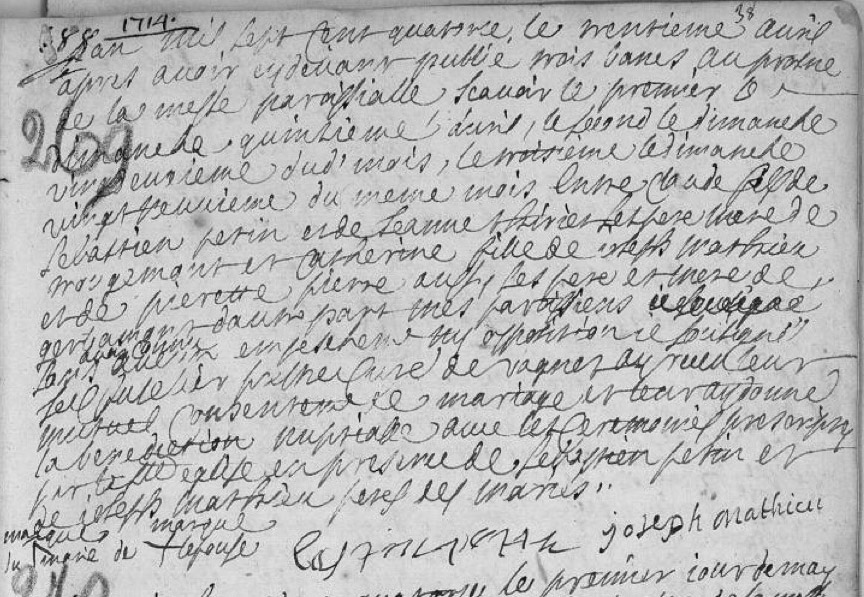 88 1714. 38
L'an mil sept cent quatorze, le trentieme avril
apres avoir cydevant publie trois bancs au prosne
de la messe paroissialle scavoir le premier le
dimanche quintieme avril, le second le dimanche
269
vingdeuxieme dud' mois, le troisieme le dimanche
vingt neuvieme du meme mois Entre Claude fils de
sebastien petin et de Jeanne ses pere mere de
rougemont et Catherine fille de Joseph Mathieu
et de pierette pierre aussy ses pere et mere de
d'autre part mes paroissiens
sans empeschement ny opposition je soubsigné
prestre Curé de ay receu leur
mutuel Consentement de mariage et leur ay donné
la benediction nuptiale avec les Ceremonies prescriptes
par eglise en presence de sebastien petin et
de Joseph Mathieu peres des mariés.
marque marque
du marie de lepouse
Joseph Mathieu
le premier jour de may